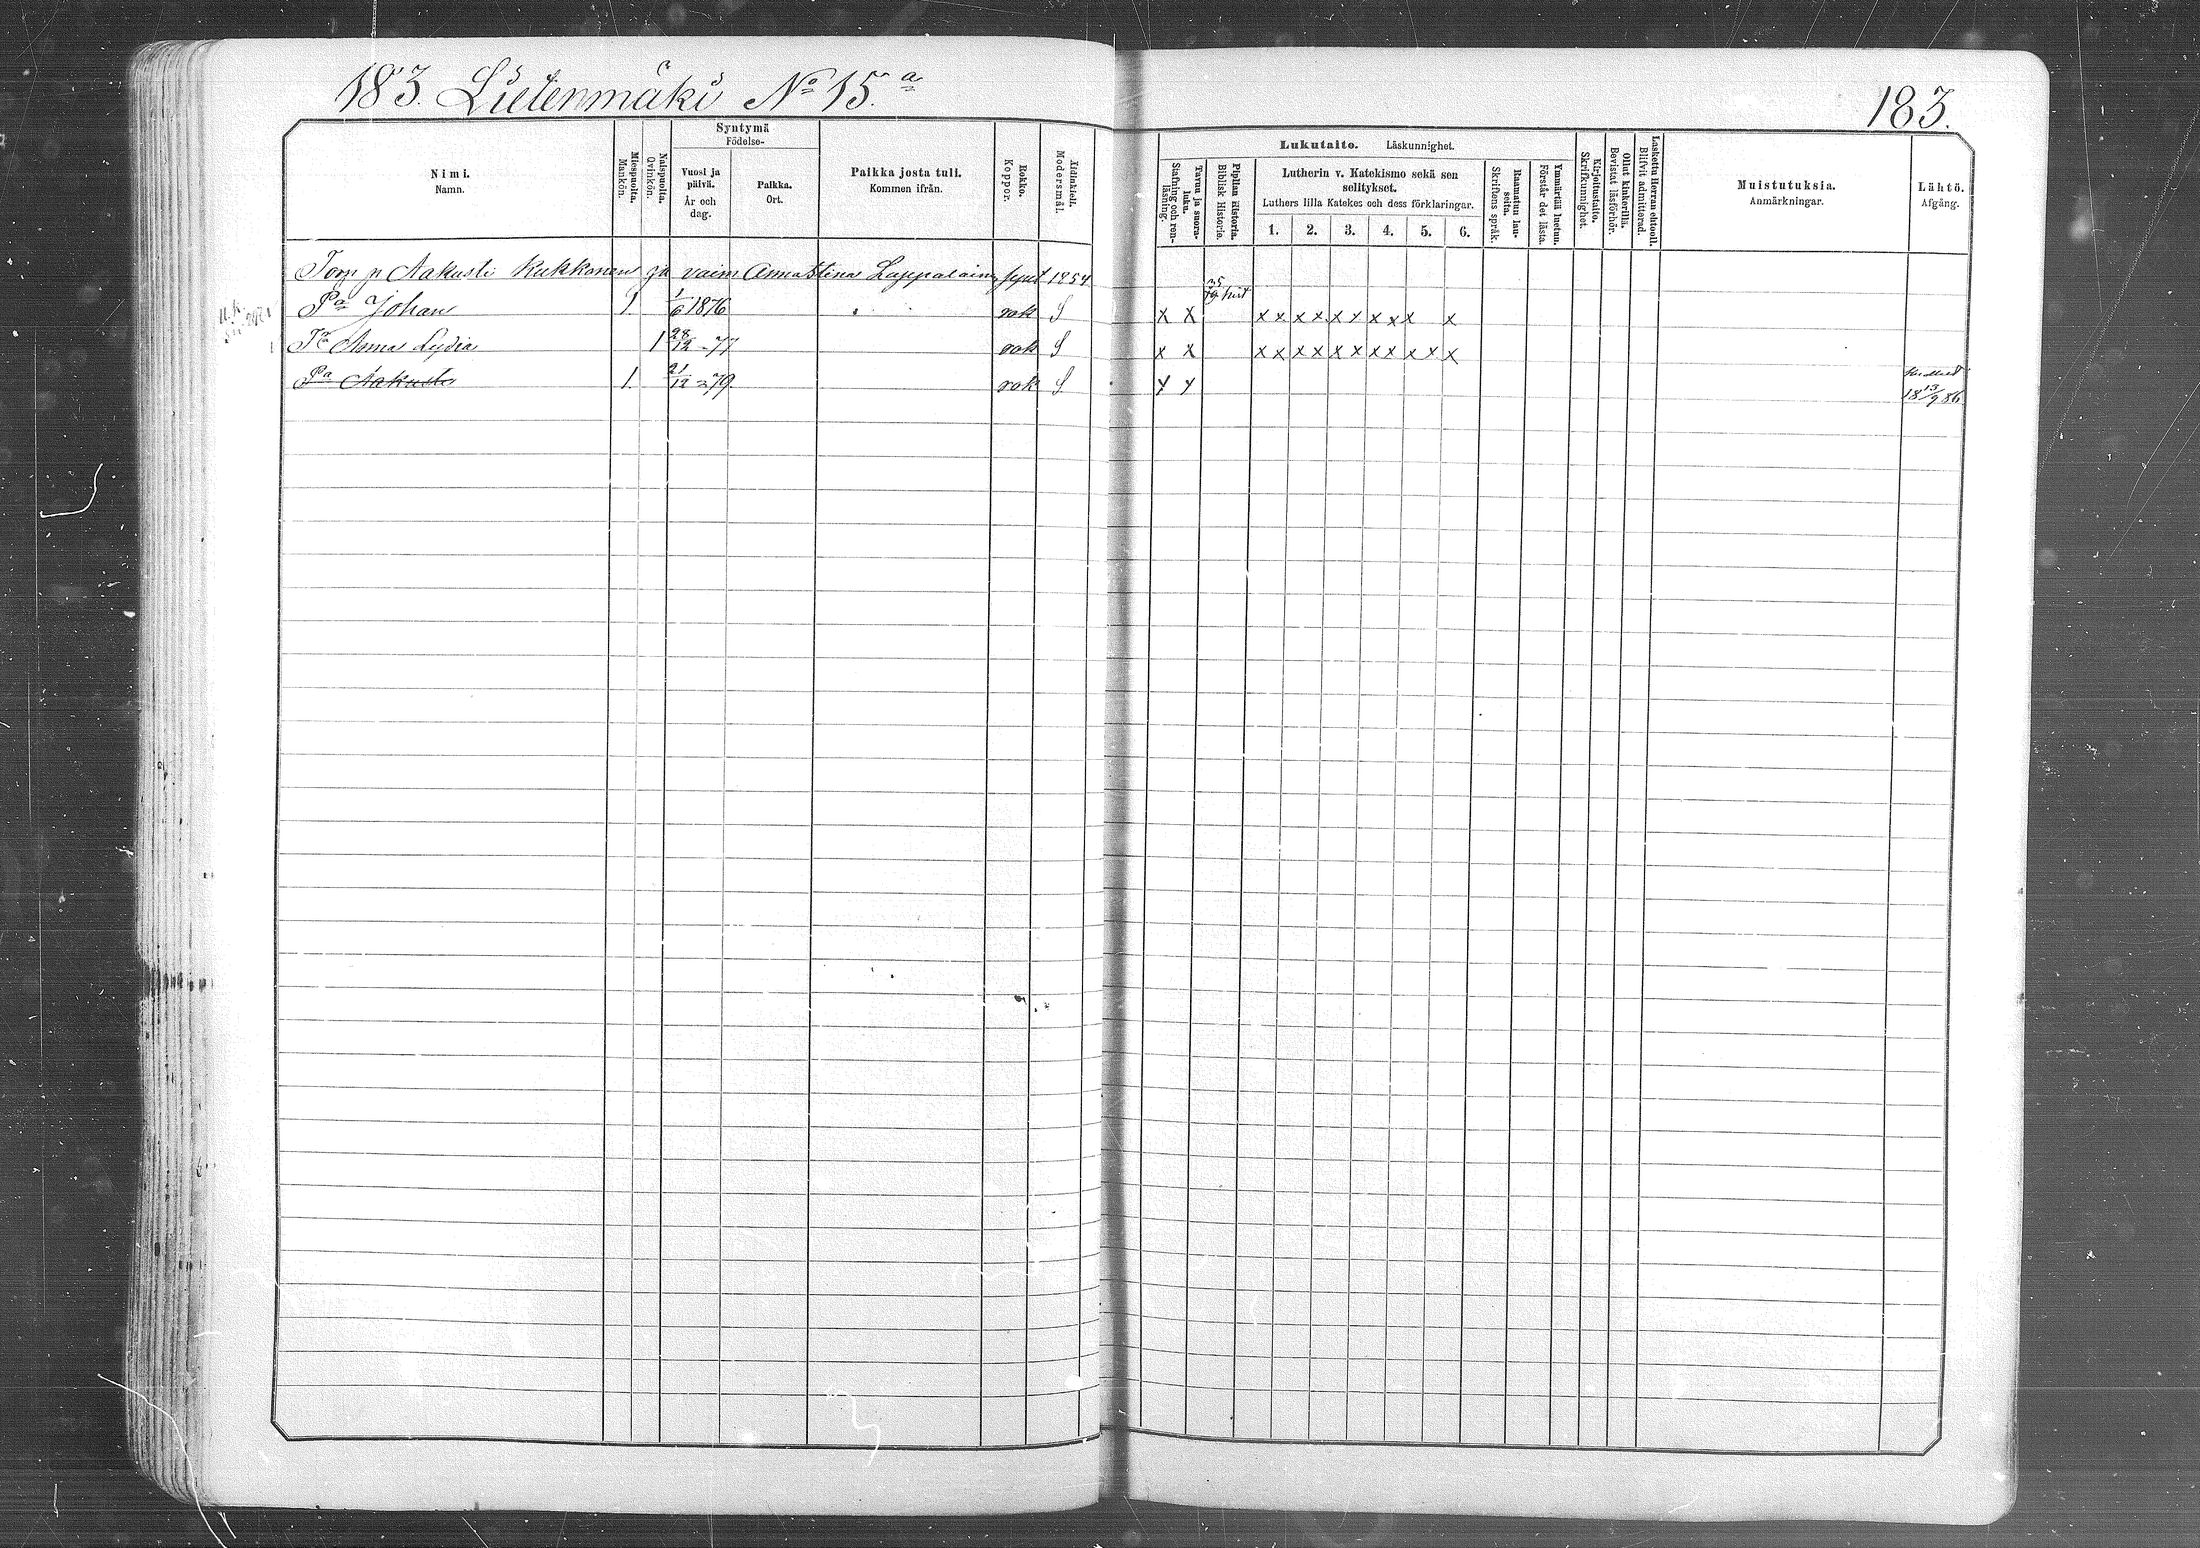 183. Lietenmäki No 15.a
183.
Syntymä
Födelse-
Nimi.
Namn.
Miespuolia.
Mankön.
Naispuolia.
Qvinkön.
Vuosi ja päivä.
År och dag.
Paikka.
Ort.
Paikka josta tuli.
Kommen ifrån.
Rokko.
Koppor.
Äidinkieli.
Modersmål.
Lukutaito. Läskunnighet.
Stafning och ren-läsning.
Tavuu ja suora-luku.
Piplian Historia.
Biblisk Historie.
Lutherin v. Katekismo sekä sen selitykset.
Luthers lilla Katekes och dess förklaringar.
1. 2. 3. 4. 5. 6.
Raamatun lau-seita.
Skriftens språk.
Ymmärtää luetun.
Förstår det lästa.
Kirjoitustaito.
Skrifkunnighet.
Ollut kinkerillä.
Bevistat läsförhör.
Laskettu Herran ehtooll.
Blifvit admitterad.
Muistutuksia.
Anmärkningar.
Lähtö.
Afgång.
Torp p Aakusti Kukkonen ja vaim Anna Stina Lappalain synt 1854
Pa Johan 1. 1/6 1876 rok S x x x x x x x x x x x x
Tr Anna Lydia 1 28/12 -77 rok S x x x x x x x x x x x x x
Pa Aakusti 1. 21/12 -79. rok S x x 18 13/9 86.